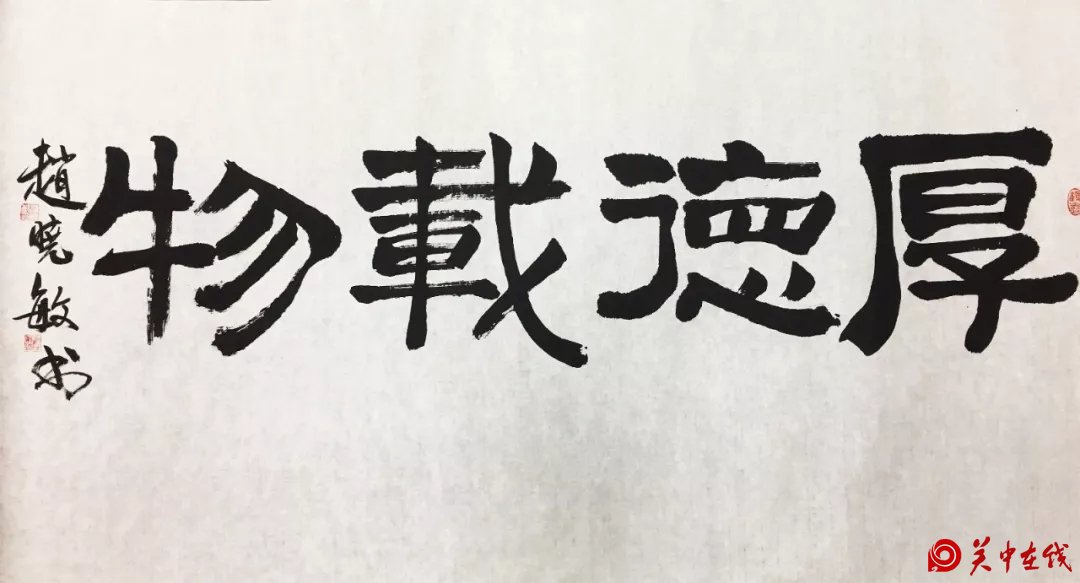 厚德載物
趙曉敏书
关中在线